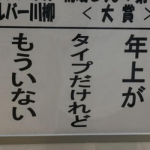 シルバー川柳
＜大賞＞
年上が
タイプだけれど
もういない